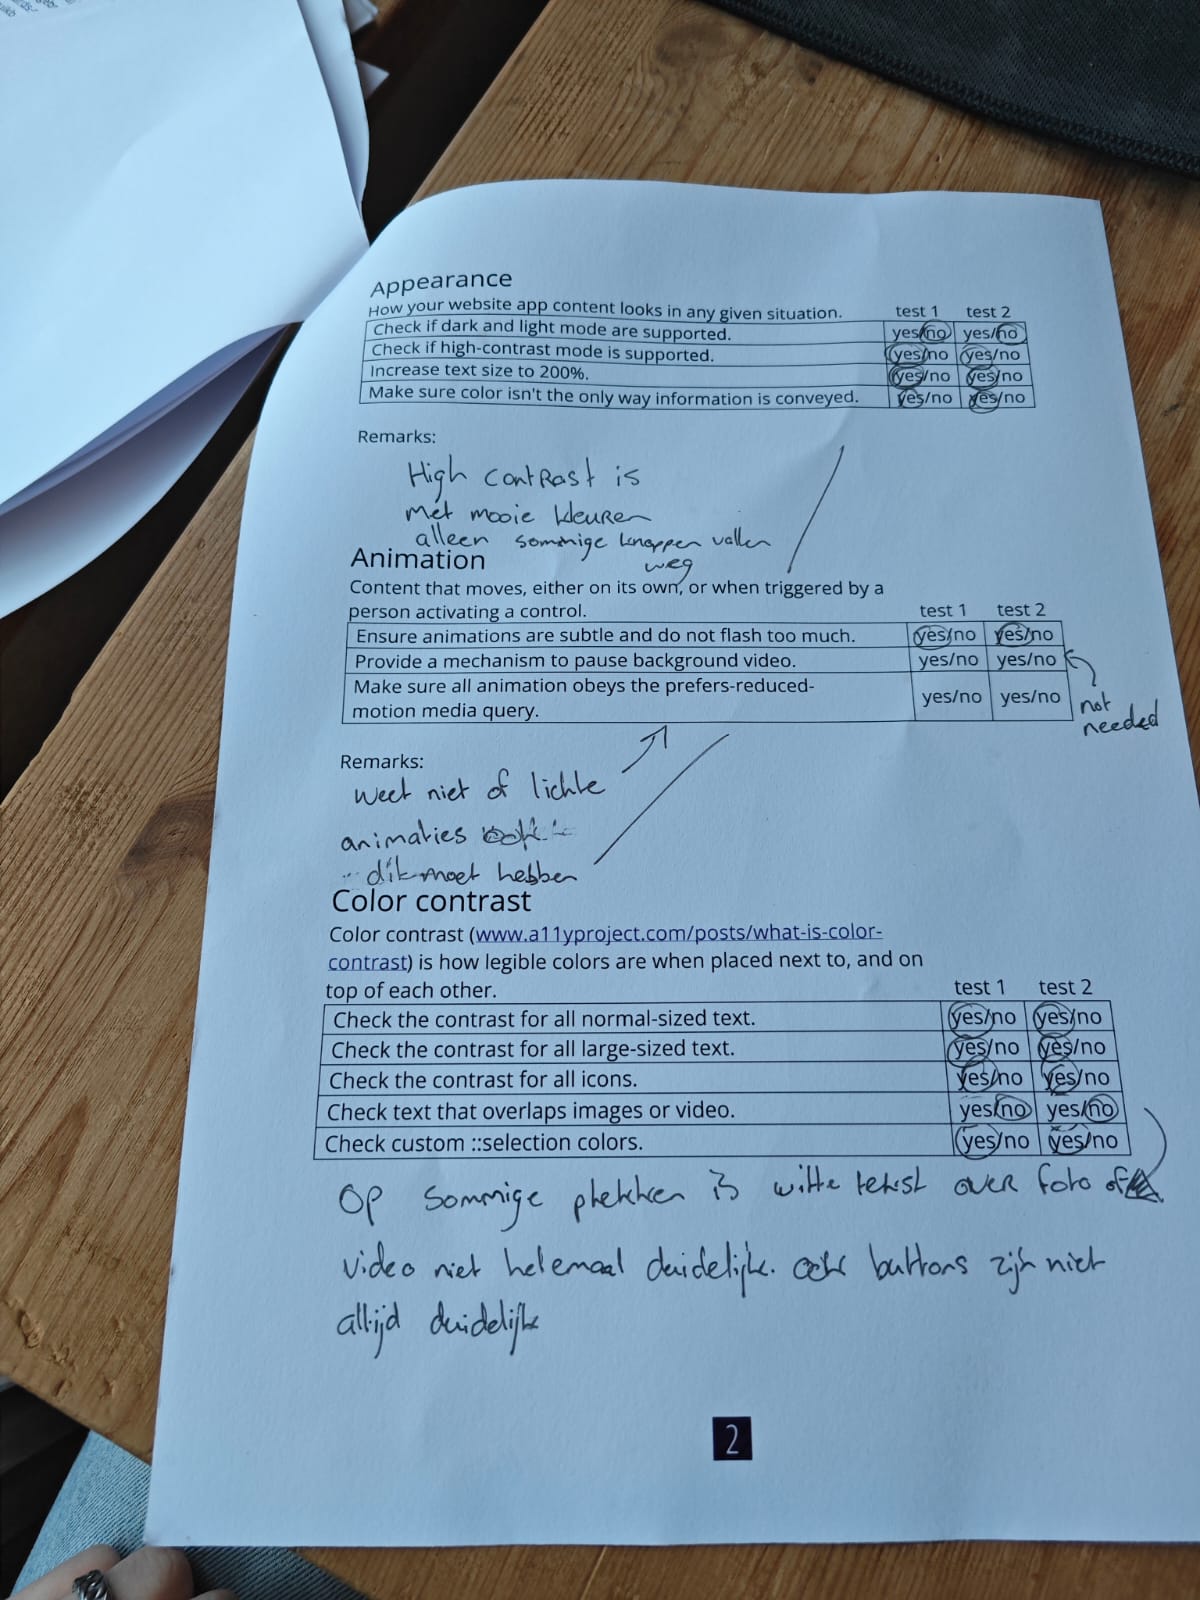 Appearance
How your website app content looks in any given situation. test 1 test 2
Check if dark and light mode are supported. yes/no yes/no
Check if high-contrast mode is supported. yes/no yes/no
Increase text size to 200%. yes/no yes/no
Make sure color isn't the only way information is conveyed. yes/no yes/no
Remarks:
High contrast is
met mooie kleuren
alleen sommige knoppen vallen
weg
Animation
Content that moves, either on its own, or when triggered by a
person activating a control. test 1 test 2
Ensure animations are subtle and do not flash too much. yes/no yes/no
Provide a mechanism to pause background video. yes/no yes/no
Make sure all animation obeys the prefers-reduced-
motion media query. yes/no yes/no
not
needed
Remarks:
weet niet of lichte
animaties
dik moet hebben
Color contrast
Color contrast (www.a11yproject.com/posts/what-is-color-
contrast) is how legible colors are when placed next to, and on
top of each other. test 1 test 2
Check the contrast for all normal-sized text. yes/no yes/no
Check the contrast for all large-sized text. yes/no yes/no
Check the contrast for all icons. yes/no yes/no
Check text that overlaps images or video. yes/no yes/no
Check custom ::selection colors. yes/no yes/no
Op sommige plekken is witte tekst over foto of
video niet helemaal duidelijk. ook buttons zijn niet
altijd duidelijk
2